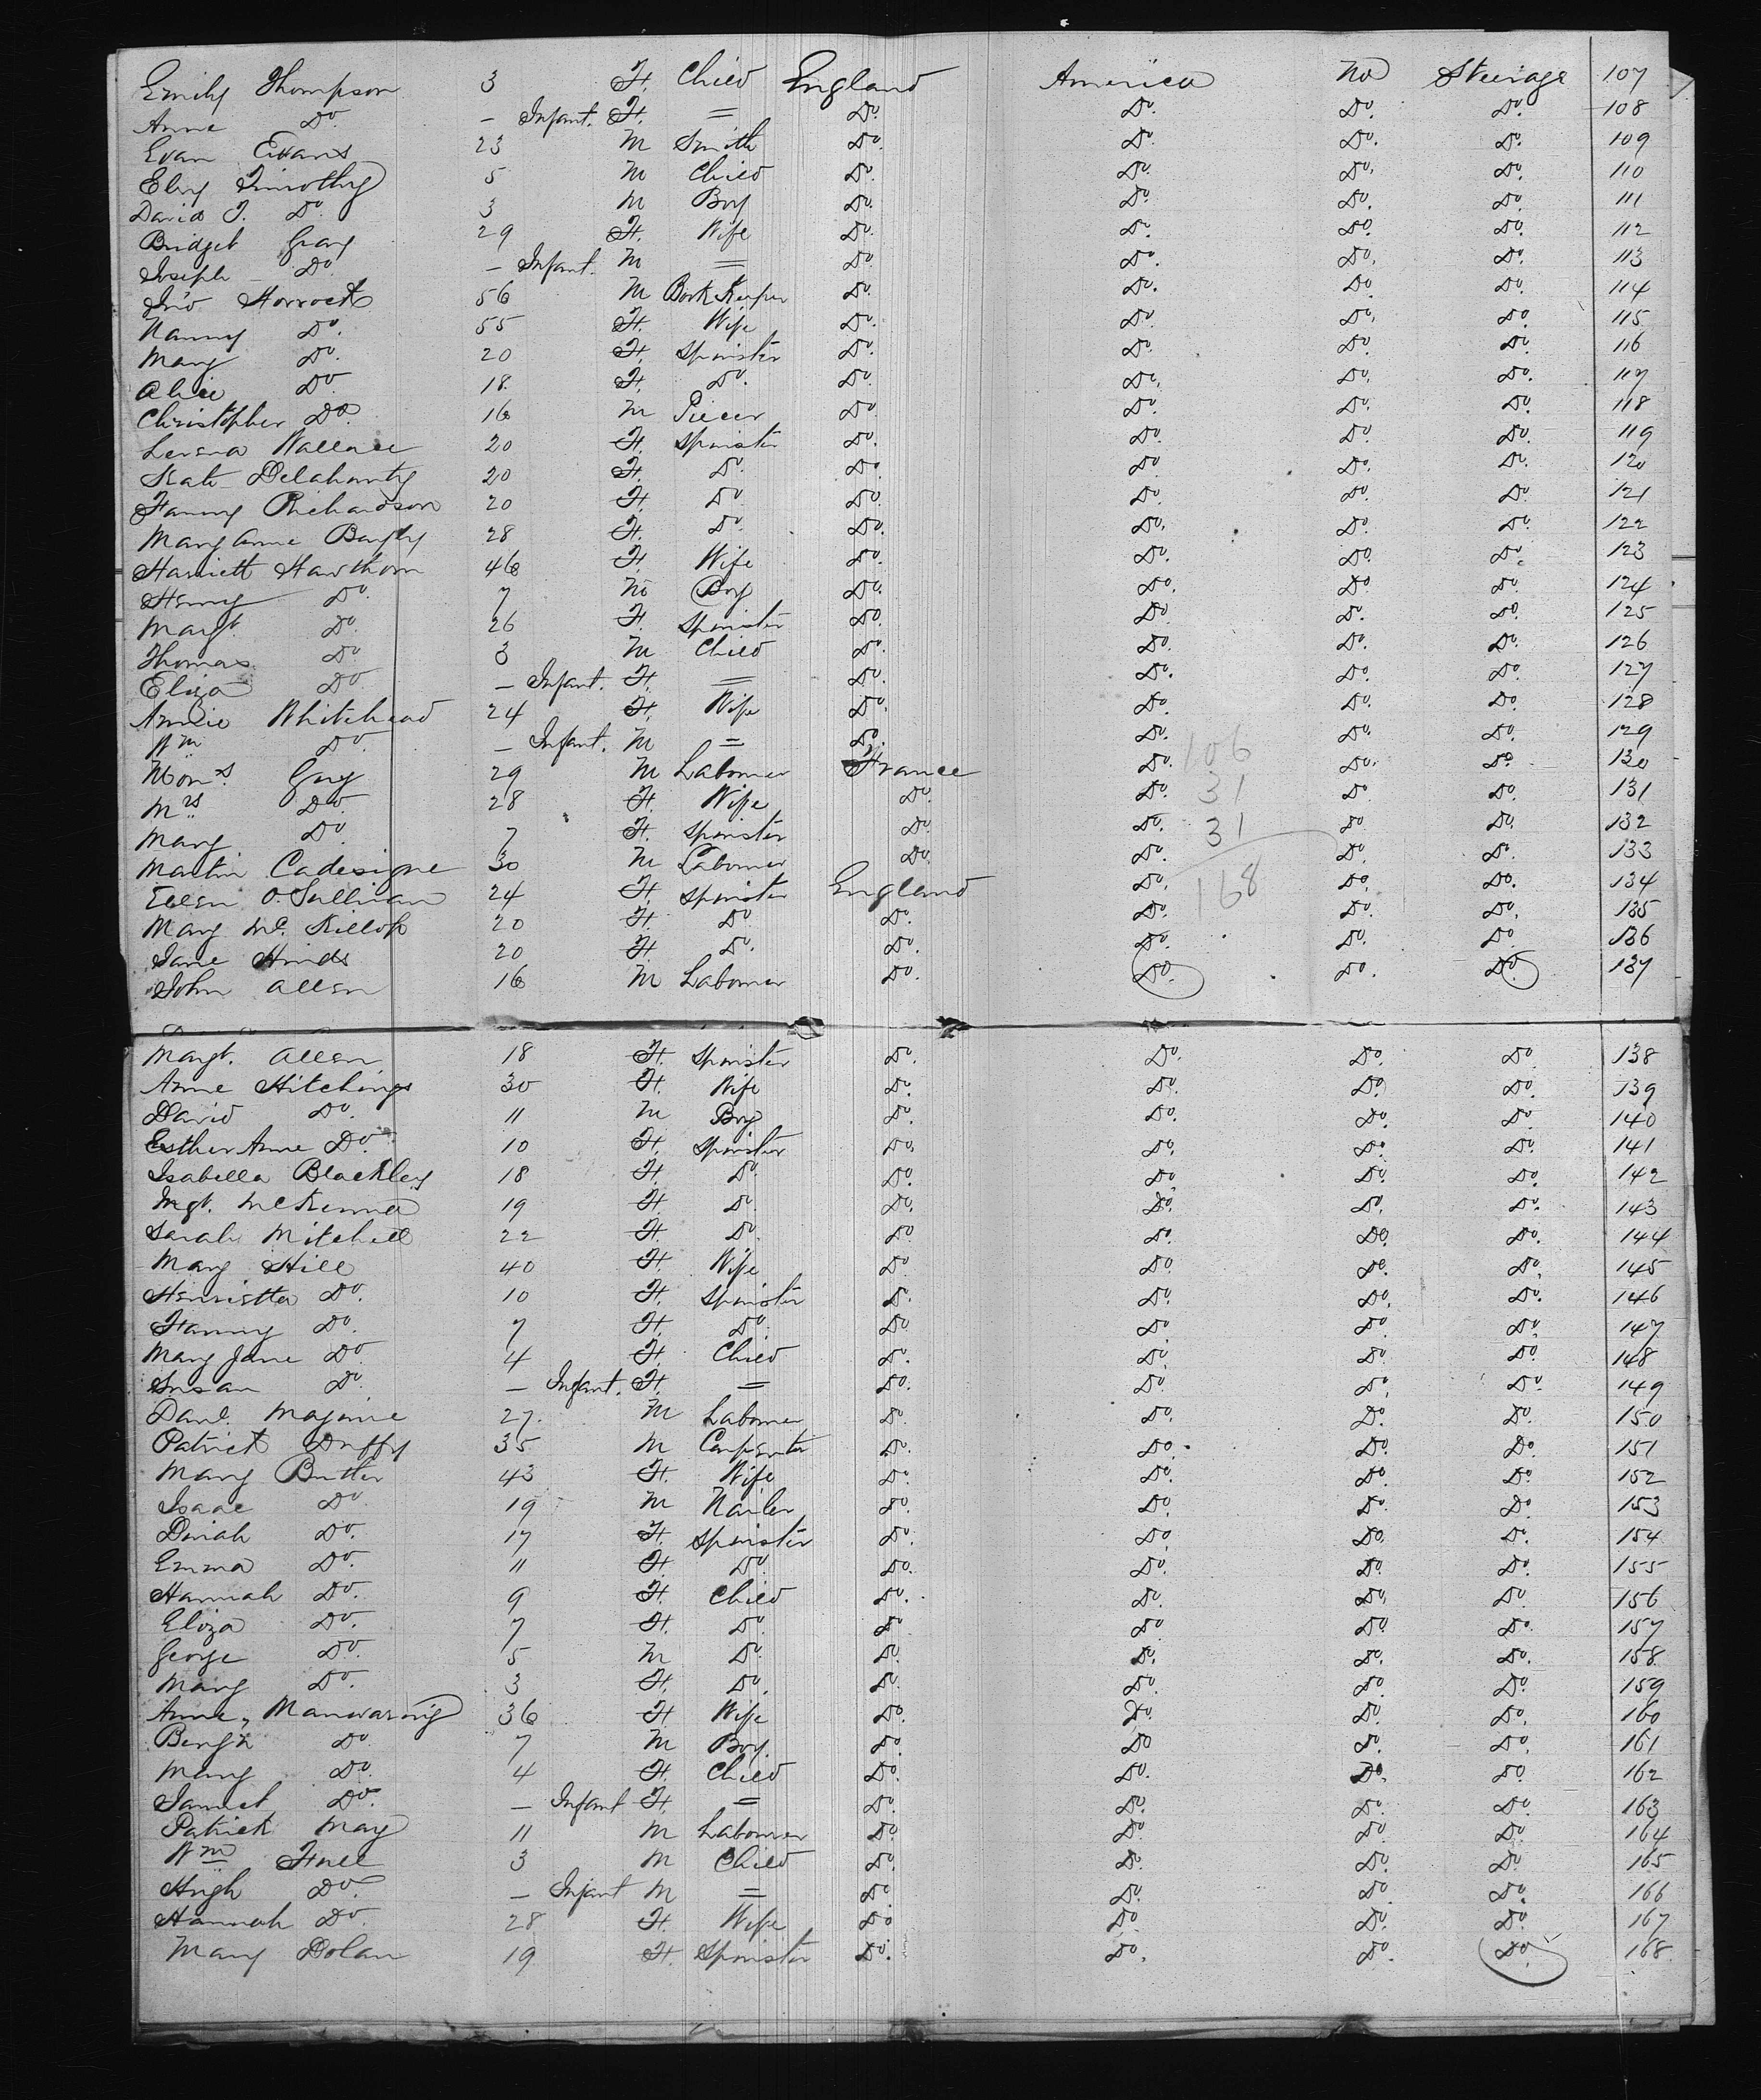 Emily Thompson 3 F. Child England America No Steerage 107
Anne Do. – Infant. F. = Do. Do. Do. Do. 108
Evan Evans 23 M Smith Do. Do. Do. Do. 109
Timothy 5 M Child Do. Do. Do. Do. 110
David T. Do. 3 M Boy Do. Do. Do. Do. 111
Bridget Gray 29 F. Wife Do. Do. Do. Do. 112
Joseph Do. – Infant. M = Do. Do. Do. Do. 113
Jno Horrocks 56 M Book Keeper Do. Do. Do. Do. 114
Nanny Do. 55 F. Wife Do. Do. Do. Do. 115
Mary Do. 20 F. Spinster Do. Do. Do. Do. 116
Alice Do. 18. F. Do. Do. Do. Do. Do. 117
Christopher Do. 16 M Piecer Do. Do. Do. Do. 118
Wallace 20 F. Spinster Do. Do. Do. Do. 119
Kate Delahunty 20 F. Do. Do. Do. Do. Do. 120
Fanny Richardson 20 F. Do. Do. Do. Do. Do. 121
Mary Anne 28 F. Do. Do. Do. Do. Do. 122
Harriett Hawthorn 46 F. Wife Do. Do. Do. Do. 123
Henry Do. 7 M Boy Do. Do. Do. Do. 124
Margt. Do. 26 F. Spinster Do. Do. Do. Do. 125
Thomas Do. 3 M Child Do. Do. Do. Do. 126
Eliza Do. – Infant. F. = Do. Do. Do. Do. 127
Annie Whitehead 24 F. Wife Do. Do. Do. Do. 128
Wm Do. – Infant. M = Do. Do. Do. Do. 129
Mons. Guy 29 M Labourer France Do. 106 Do. Do. 130
Mrs Do. 28 F. Wife Do. Do. 31 Do. Do. 131
Mary Do. 7 F. Spinster Do. Do. 31 Do. Do. 132
Martin Cadesigne 30 M Labourer Do. Do. Do. Do. 133
Ellen O.Sullivan 24 F. Spinster England Do. 168 Do. Do. 134
Mary Mc. Killop 20 F. Do. Do. Do. Do. Do. 135
Jane Hinds 20 F. Do. Do. Do. Do. Do. 136
John Allen 16 M Labourer Do. Do. Do. Do. 137
Margt. Allen 18 F. Spinster Do. Do. Do. Do. 138
Anne Hitchings 30 F. Wife Do. Do. Do. Do. 139
David Do. 11 M Boy Do. Do. Do. Do. 140
Esther Anne Do. 10 F. Spinster Do. Do. Do. Do. 141
Isabella Blackley 18 F. Do. Do. Do. Do. Do. 142
Mgt. McKenna 19 F. Do. Do. Do. Do. Do. 143
Sarah Mitchell 22 F. Do. Do. Do. Do. Do. 144
Mary Hill 40 F. Wife Do. Do. Do. Do. 145
Henrietta Do. 10 F. Spinster Do. Do. Do. Do. 146
Fanny Do. 7 F. Do. Do. Do. Do. Do. 147
Mary Jane Do. 4 F. Child Do. Do. Do. Do. 148
Susan Do. – Infant. F. = Do. Do. Do. Do. 149
Danl. Maginie 27. M Labourer Do. Do. Do. Do. 150
Patrick Duffy 35 M Carpenter Do. Do. Do. Do. 151
Mary Butler 43 F. Wife Do. Do. Do. Do. 152
Isaac Do. 19 M Nailer Do. Do. Do. Do. 153
Dinah Do. 17 F. Spinster Do. Do. Do. Do. 154
Emma Do. 11 F. Do. Do. Do. Do. Do. 155
Hannah Do. 9 F. Child Do. Do. Do. Do. 156
Eliza Do. 7 F. Do. Do. Do. Do. Do. 157
George Do. 5 M Do. Do. Do. Do. Do. 158
Mary Do. 3 F. Do. Do. Do. Do. Do. 159
Anne, Manwaring 36 F. Wife Do. Do. Do. Do. 160
Benjn Do. 7 M Boy. Do. Do. Do. Do. 161
Mary Do. 4 F. Child Do. Do. Do. Do. 162
Do. – Infant F. = Do. Do. Do. Do. 163
Patrick May 11 M Labourer Do. Do. Do. Do. 164
Wm 3 M Child Do. Do. Do. Do. 165
Hugh Do. – Infant M = Do. Do. Do. Do. 166
Hannah Do. 28 F. Wife Do. Do. Do. Do. 167
Mary Dolan 19 F. Spinster Do. Do. Do. Do. 168